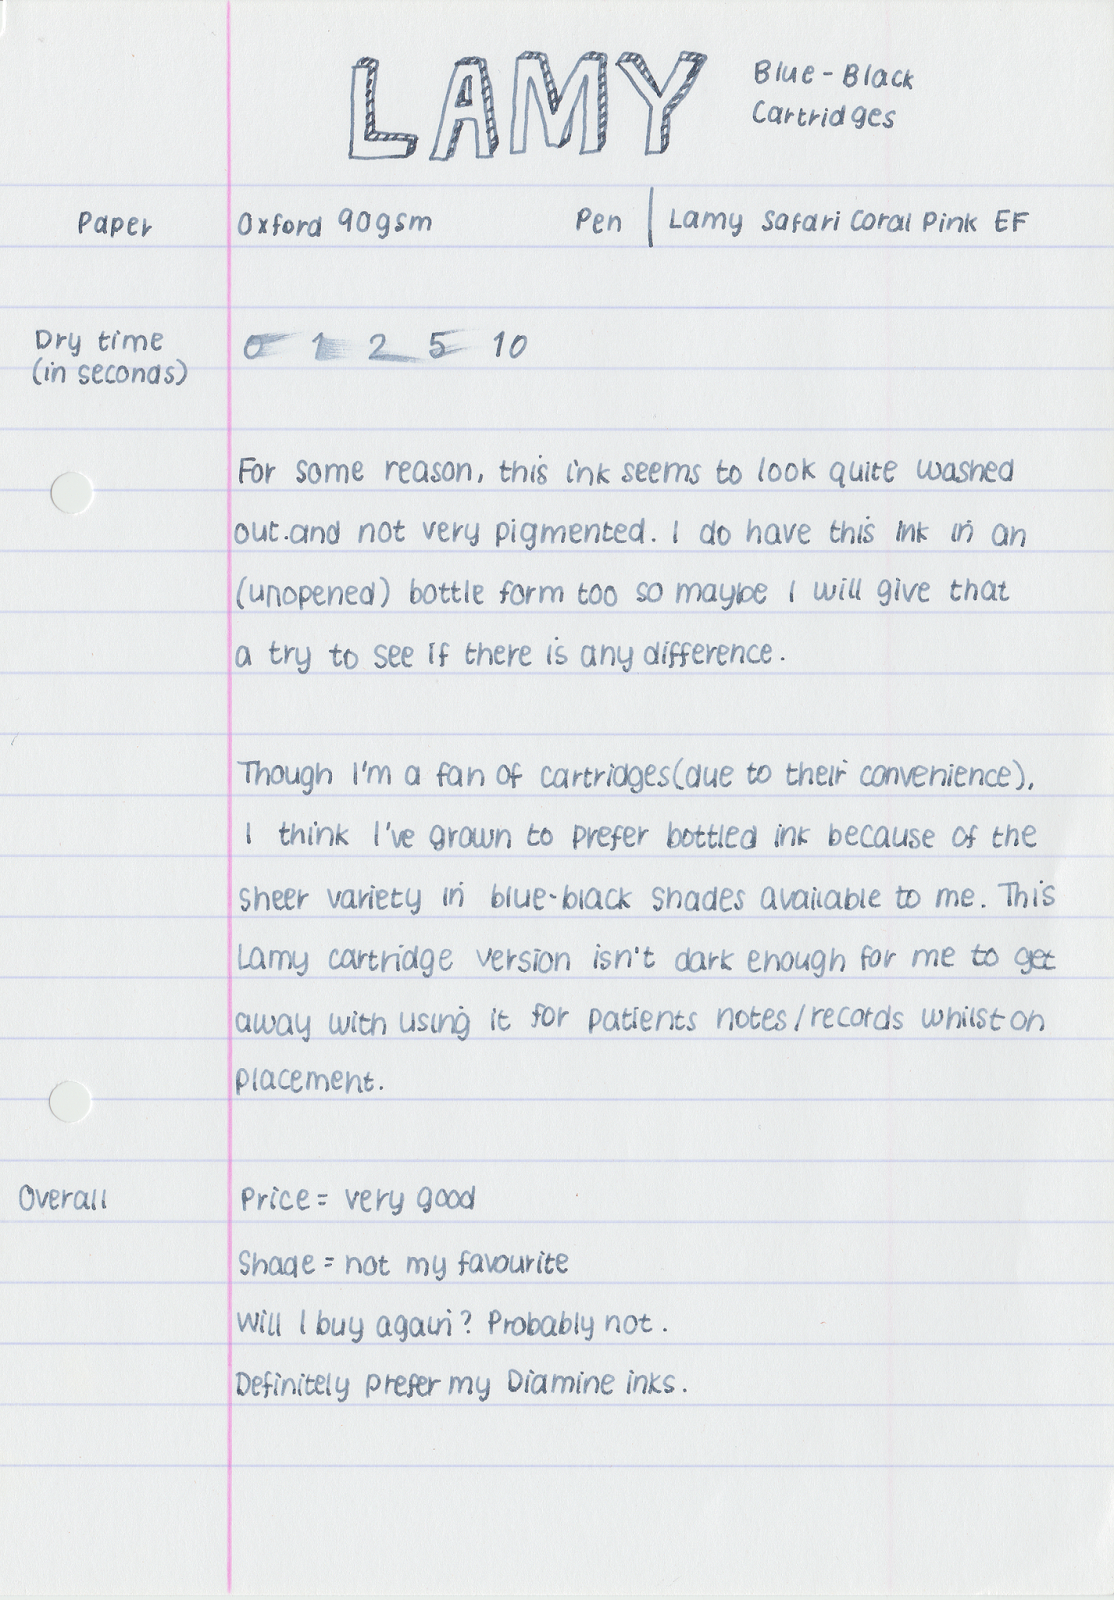 LAMY Blue-Black
Cartridges
Paper Oxford 90gsm Pen Lamy Safari Coral Pink EF
Dry time 0 1 2 5 10
(in seconds)
For some reason, this ink seems to look quite washed
out.and not very pigmented. I do have this ink in an
(unopened) bottle form too so maybe I will give that
a try to see if there is any difference.
Though I'm a fan of cartridges(due to their convenience),
I think I've grown to prefer bottled ink because of the
sheer variety in blue-black shades available to me. This
Lamy cartridge version isn't dark enough for me to get
away with using it for patients notes/records whilst on
placement.
Overall Price = very good
Shade = not my favourite
Will I buy again? Probably not.
Definitely prefer my Diamine inks.